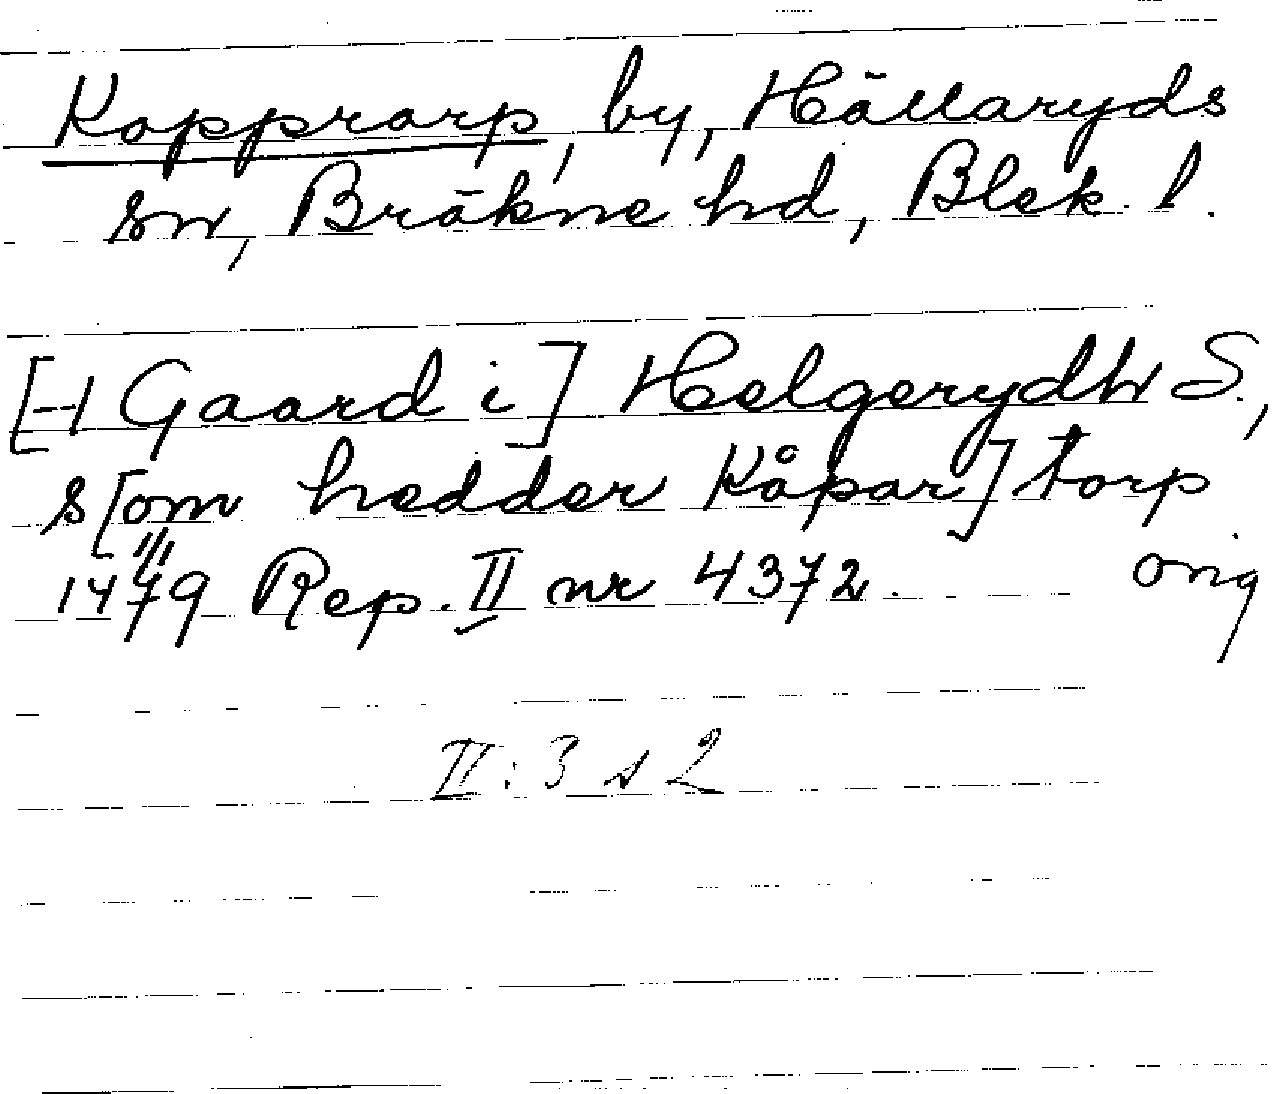 Kopprarp, by, Hällaryds
sn, Bräkne hd, Blek. l.
[-1 Gaard i] Helgerydh S.,
s[om hedder Kåpar]torp
1479 Rep. II nr 4372. orig
II: 3 s 2